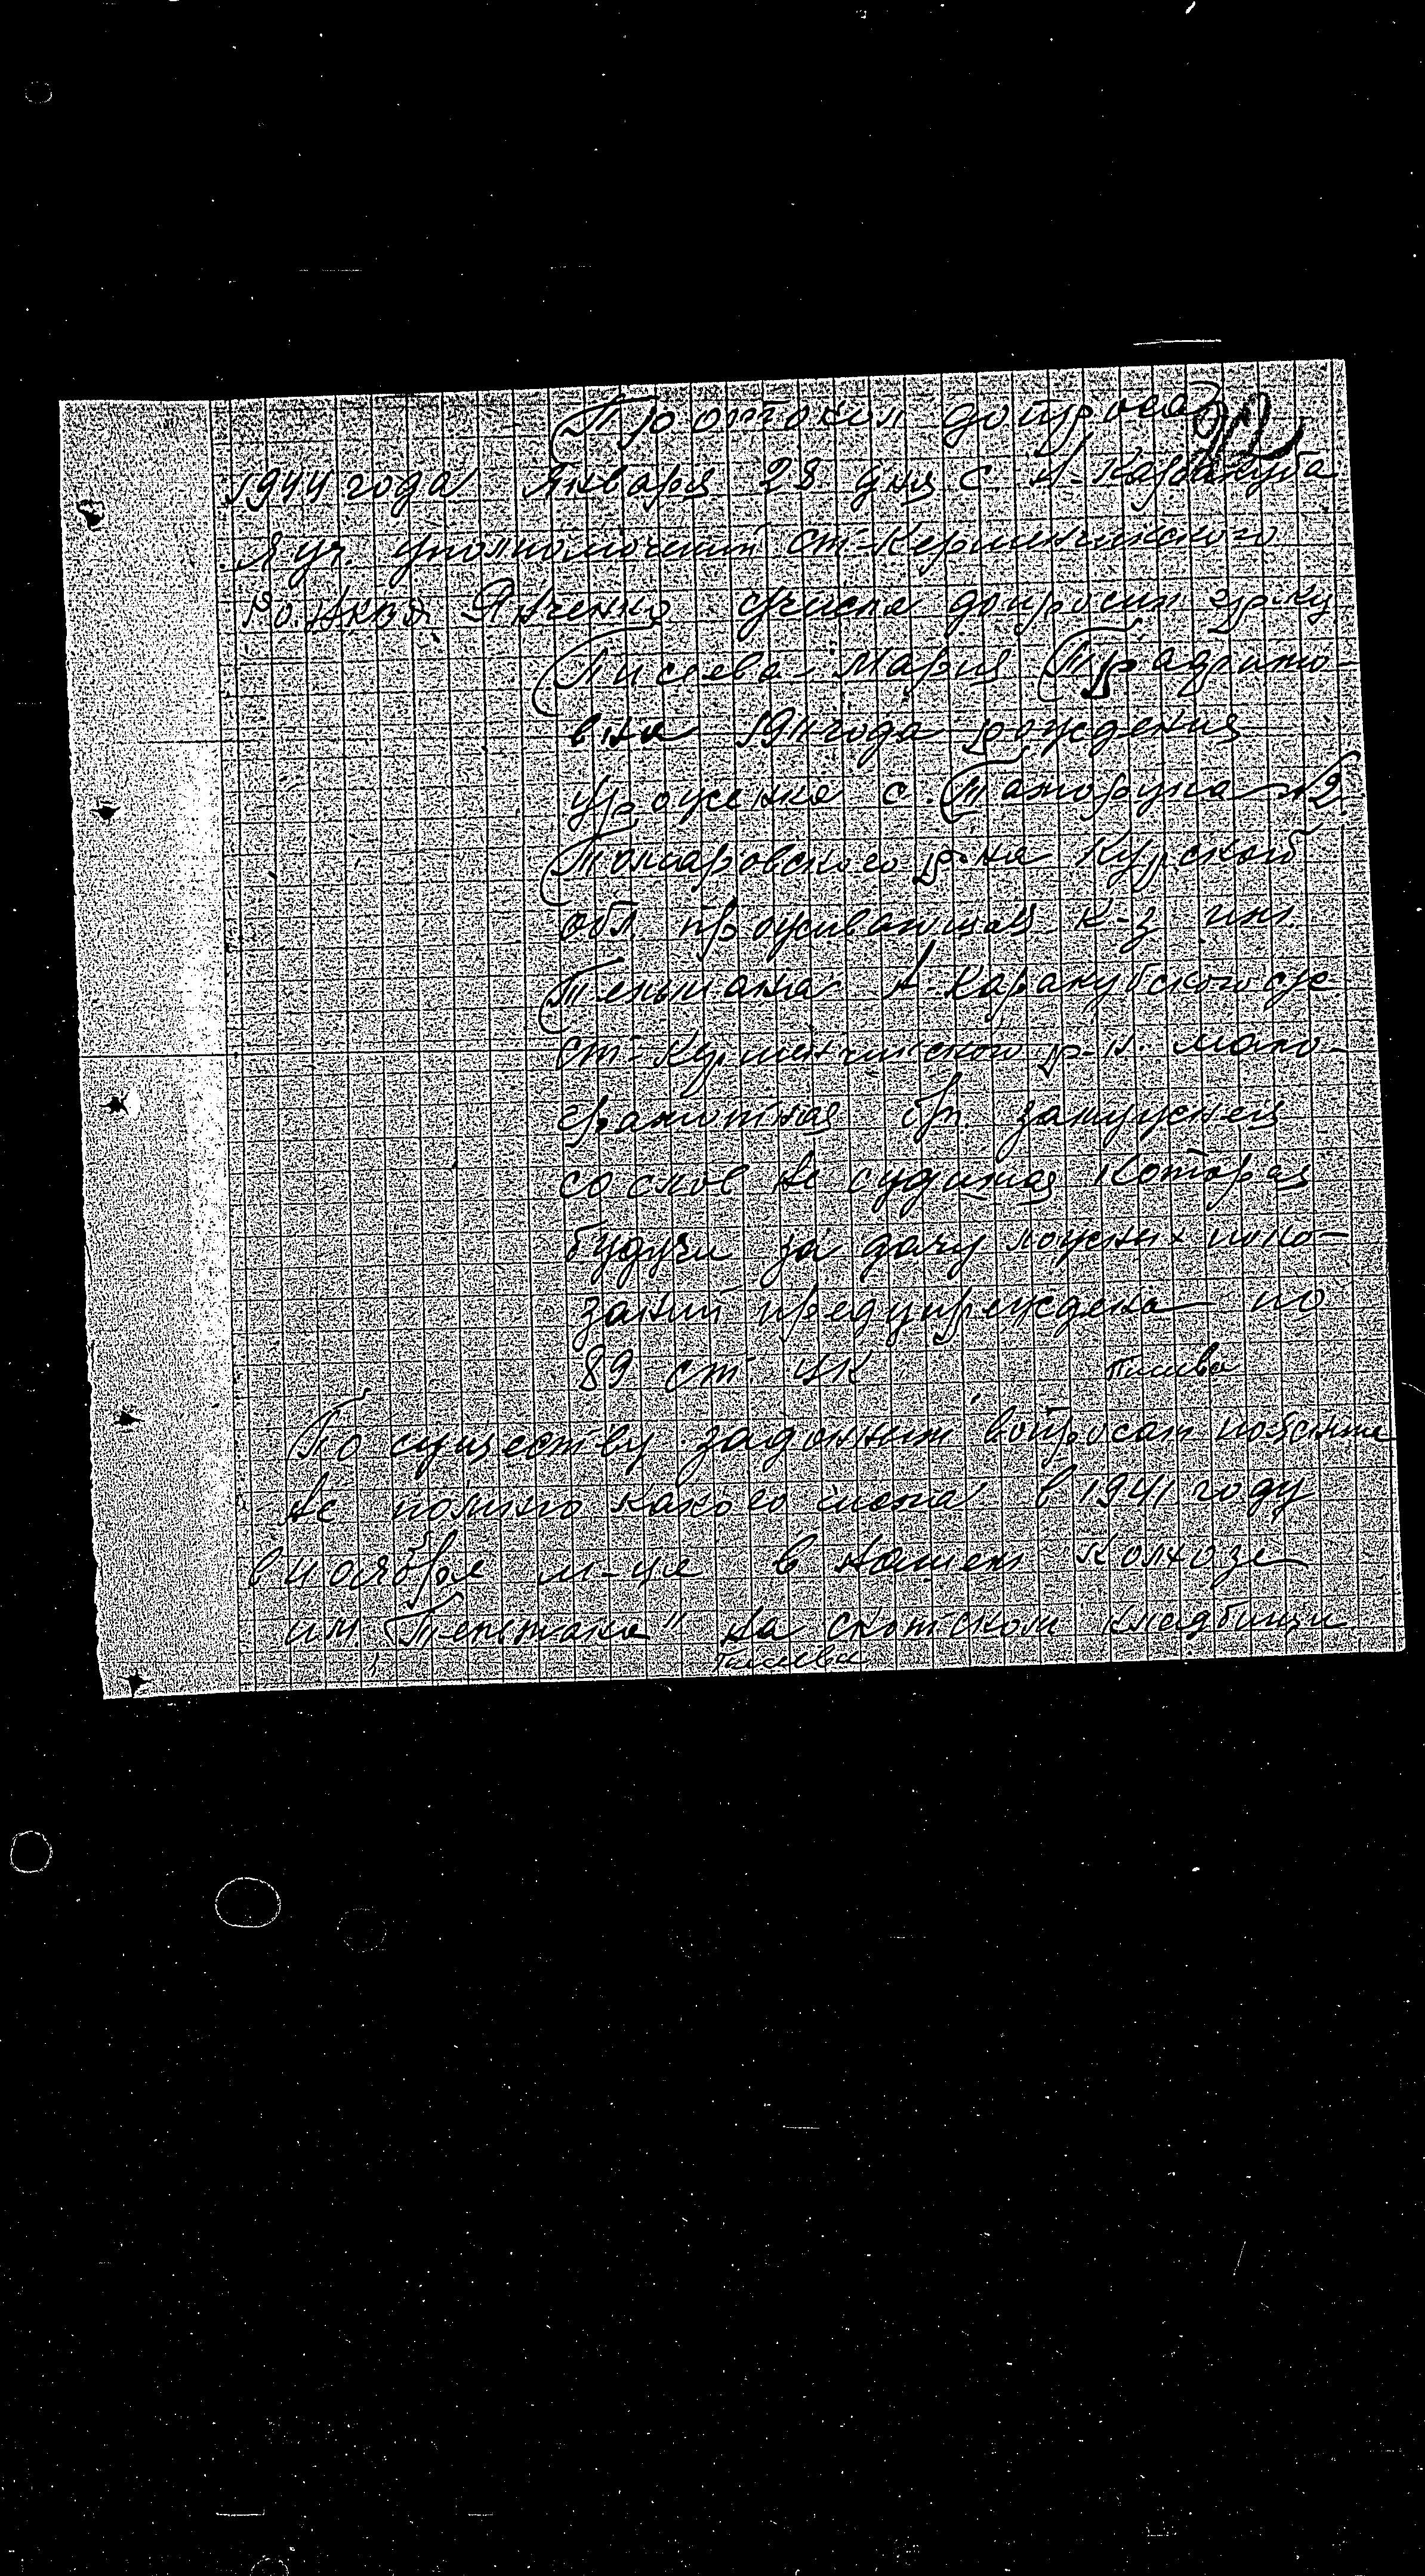 Протокол допроса
1944 года Января 28 дня с Н-Каракуба
Я уч. уполномоченый ст-Керменчикского
Ро. НКВД Янченко сего числа допросил гр-ку
Мария
вна 1911 года рождения
уроженка с. №2
Томаровского р-на Курской
обл. проживающая к-з им.
Тельмана Н-Каракубского с/с
ст-Керменчикского р-н. мало-
грамотная б/п замужняя
со слов не судимая Которая
будучи за дачу ложных пока-
заний предупреждена по
89 ст. УК
По существу заданным вопросам
Не помню какого числа в 1941 году
в ноябре м-це в нашем колхозе
им. Тельмана" на скотском кладбищи